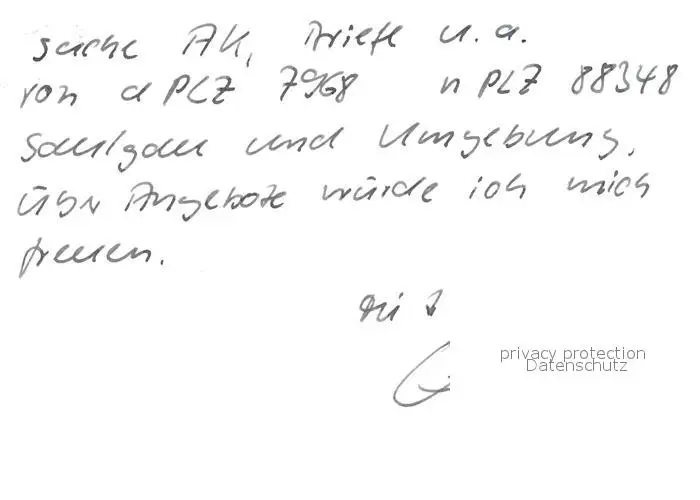 suche AK, Briefe u.a.
von a PLZ 7968 n PLZ 88348
Saulgau und Umgebung,
über Angebote würde ich mich
freuen.
privacy protection
Datenschutz